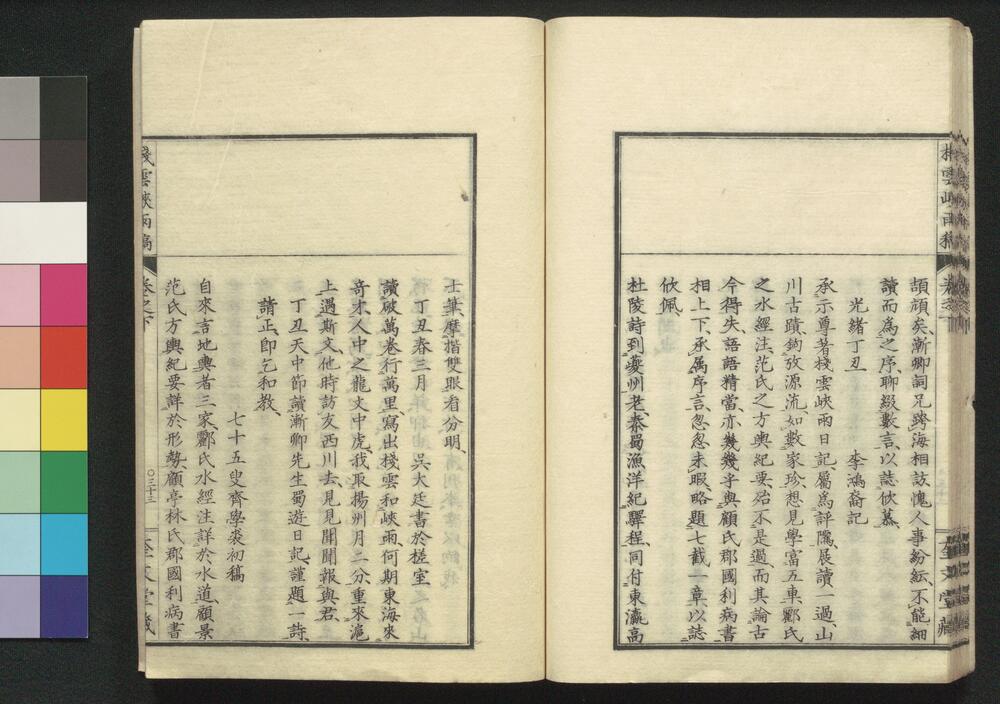 頡頏矣、漸卿詞兄跨海相訪愧人事紛紜、不能細
讀而爲之序、聊綴數言、以誌佽慕、
光緒丁丑　李鴻裔記
承示尊著棧雲峽雨日記屬爲評隲展讀一過、山
川古蹟、鈎攷源流、如數家珍、想見學富五車、酈氏
之水經注、范氏之方輿紀要、殆不是過、而其論古
今得失、語語精當、亦幾幾乎與顧氏郡國利病書
相上下、承属序言、忽忽未暇、略題七截一章、以誌
佽佩、
杜陵詩到夔州老、秦蜀漁洋紀驛程、同付東瀛高
士筆、摩揩雙眼看分明、
丁丑春三月　吳大廷書於槎室
讀破萬卷行萬里、寫出棧雲和峽雨、何期東海來
奇才、人中之龍文中虎、我取揚州月二分、重來滬
上遇斯文、他時訪友西川去、見見聞聞報與君、
丁丑天中節讀漸卿先生蜀遊日記、謹題一詩、
請正、即乞和教、
七十五叟齊學裘初稿
自來言地輿者三家、酈氏水經注詳於水道、顧景
范氏方輿紀要詳於形勢、顧亭林氏郡國利病書
棧雲峽雨稿
卷之下
〇三十三
奎文堂藏